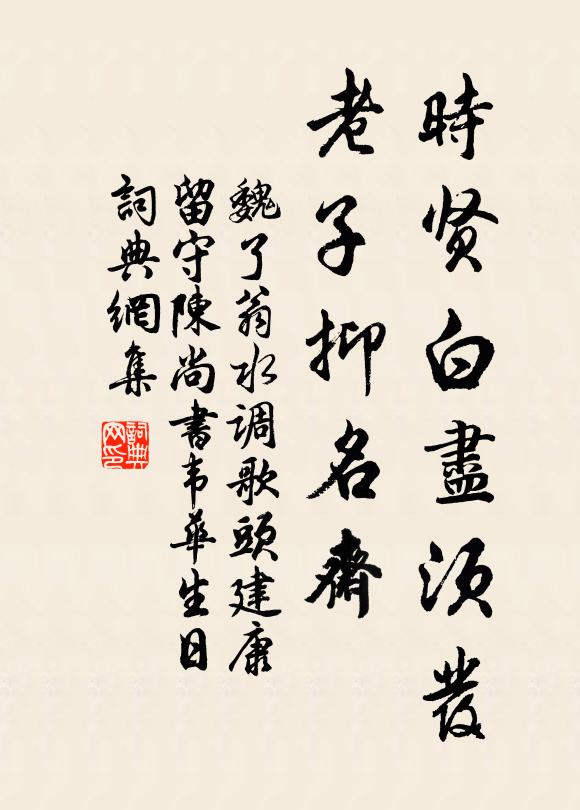 時贤白盡须发
老子抑名齋
魏了翁水调歌頭建康
留守陳尚書韦華生日
詞典網集
詞典网印